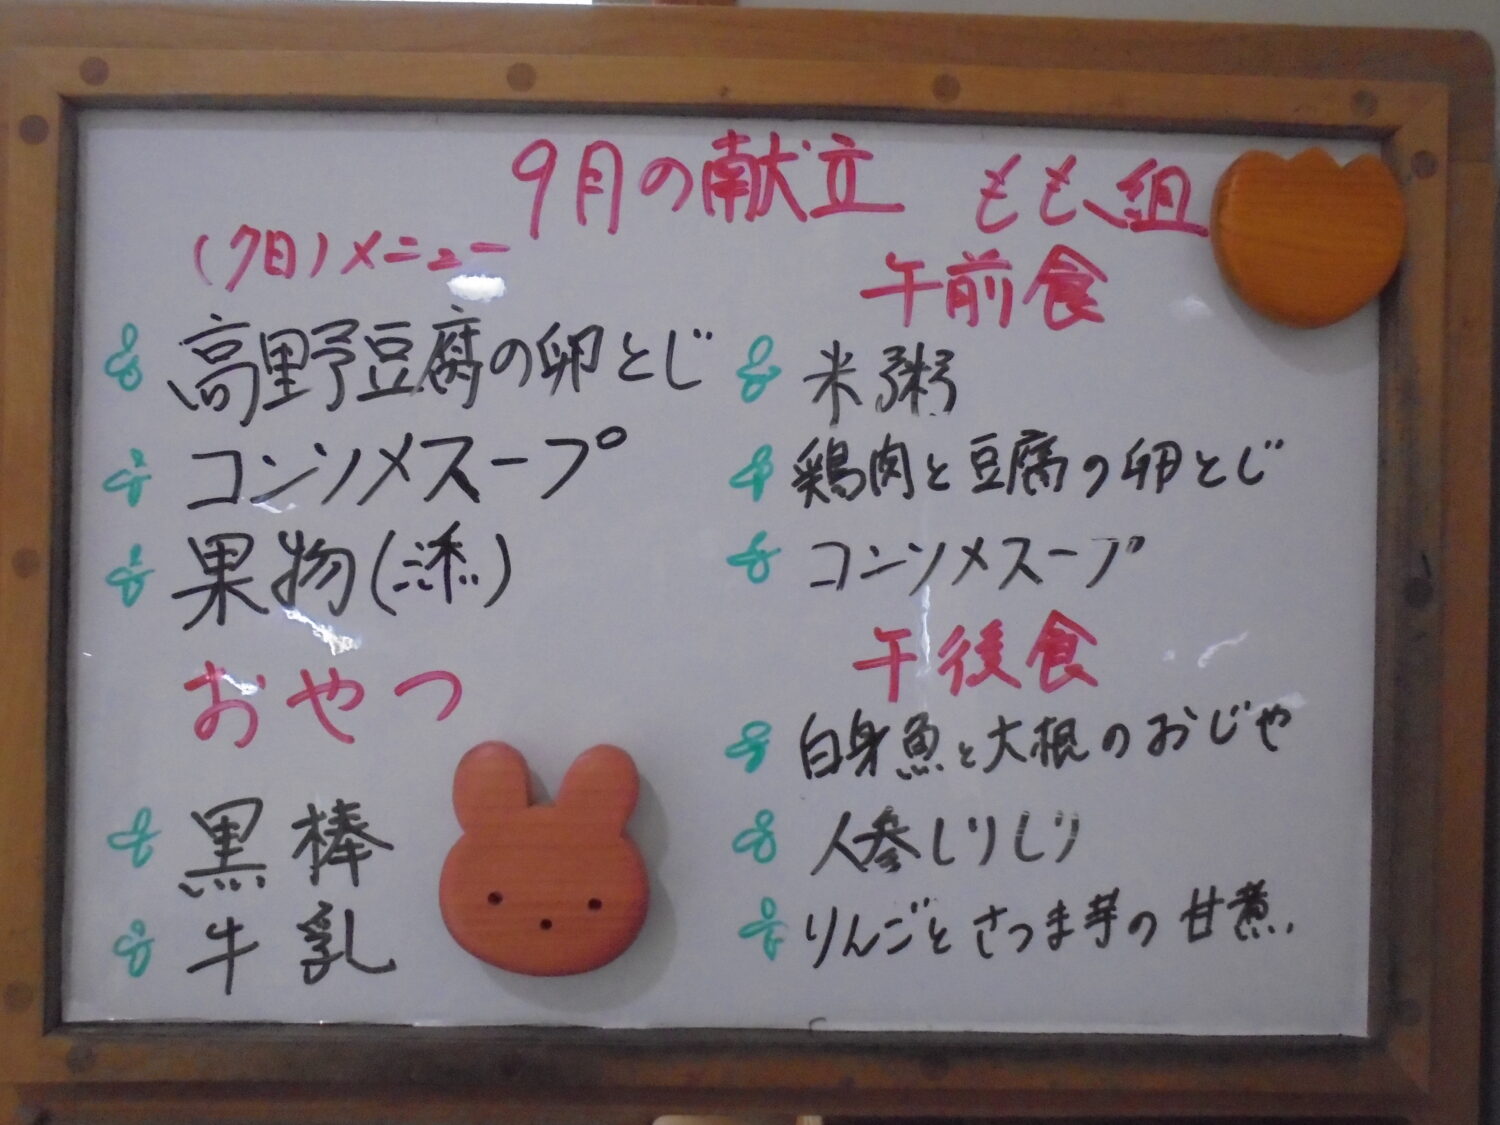 9月の献立 もも組
(7日)メニュー
高野豆腐の卵とじ
コンソメスープ
果物(添)
おやつ
黒棒
牛乳
午前食
米粥
鶏肉と豆腐の卵とじ
コンソメスープ
午後食
白身魚と大根のおじや
人参しりしり
りんごとさつま芋の甘煮